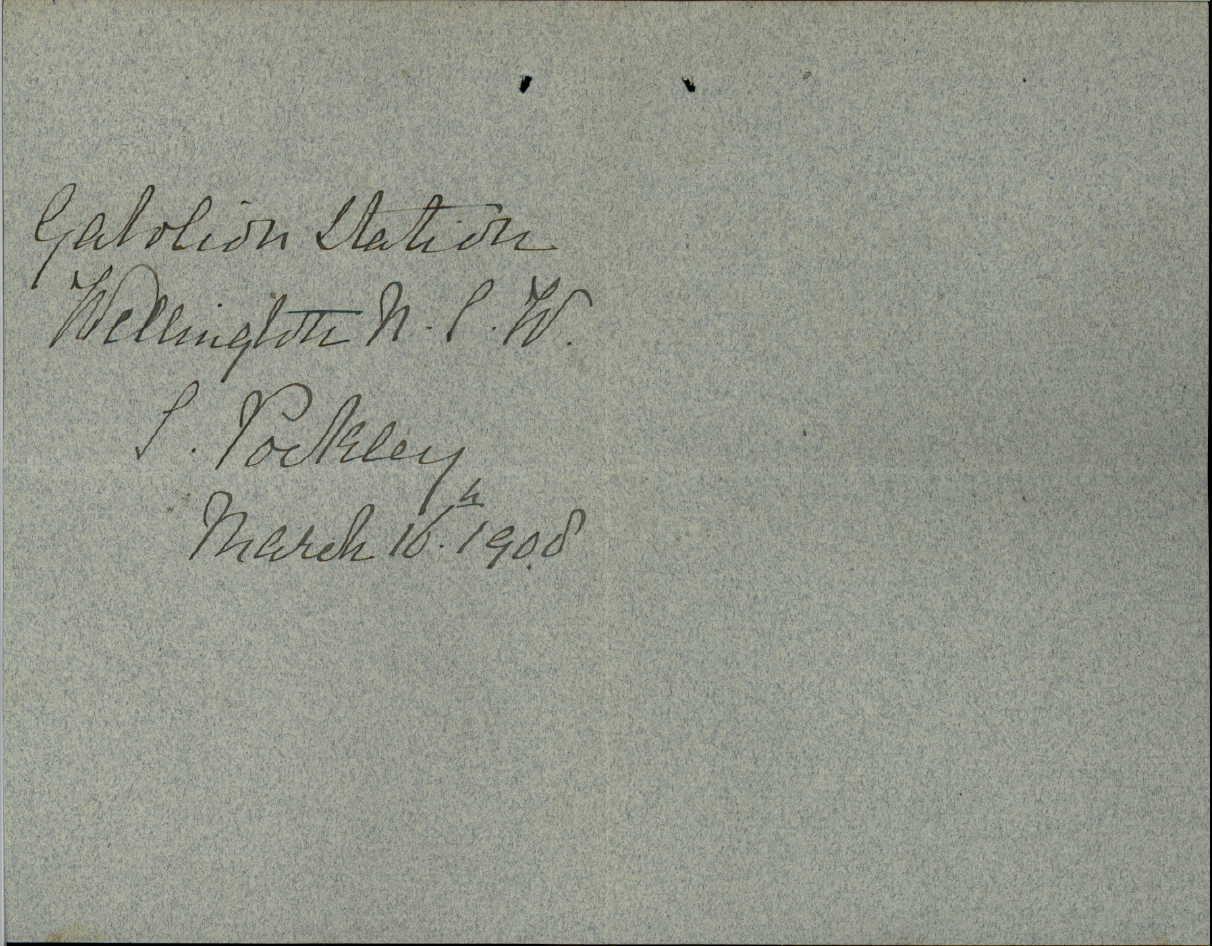 Gatolion Station
Wellington N. S. W.
S. Pockley
March 16th. 1908